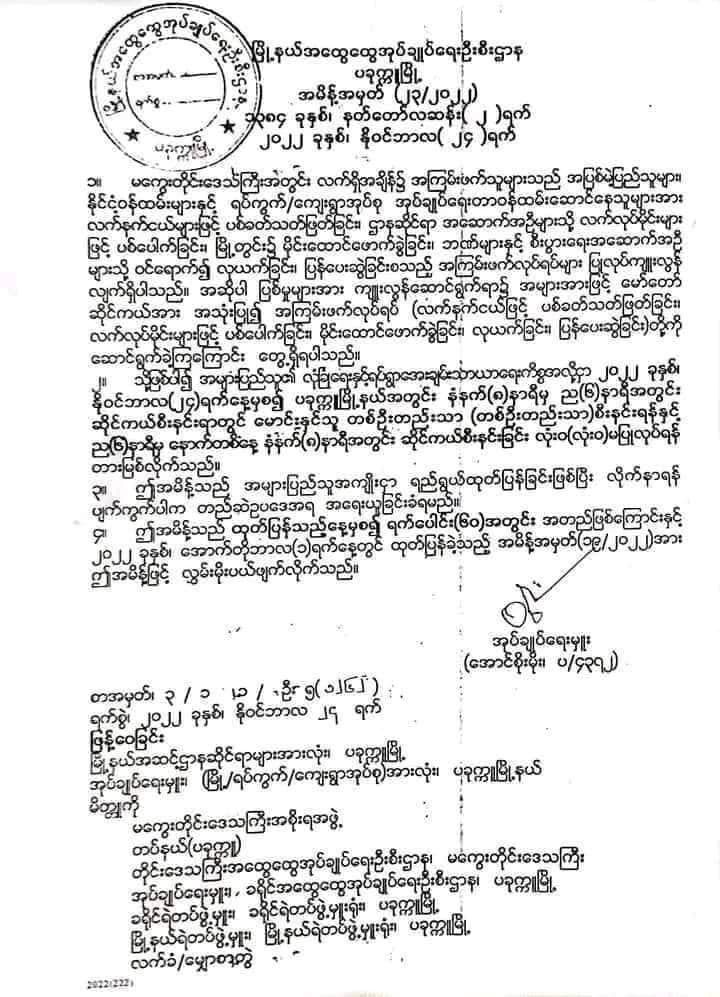 မြို့နယ်အထွေထွေအုပ်ချုပ်ရေးဦးစီးဌာန
ပခုက္ကူမြို့
မြို့နယ်အထွေထွေအုပ်ချုပ်ရေးဦးစီးဌာန
ပခုက္ကူမြို့
အမိန့်အမှတ် (၂၃/၂၀၂၂)
၁၃၈၄ ခုနှစ်၊ နတ်တော်လဆန်း( ၂ )ရက်
၂၀၂၂ ခုနှစ်၊ နိုဝင်ဘာလ( ၂၄ )ရက်
၁။ မကွေးတိုင်းဒေသကြီးအတွင်း လက်ရှိအချိန်၌ အကြမ်းဖက်သူများသည် အပြစ်မဲ့ပြည်သူများ၊
နိုင်ငံ့ဝန်ထမ်းများနှင့် ရပ်ကွက်/ကျေးရွာအုပ်စု အုပ်ချုပ်ရေးတာဝန်ထမ်းဆောင်နေသူများအား
လက်နက်ငယ်များဖြင့် ပစ်ခတ်သတ်ဖြတ်ခြင်း၊ ဌာနဆိုင်ရာ အဆောက်အဦများသို့ လက်လုပ်မိုင်းများ
ဖြင့် ပစ်ပေါက်ခြင်း၊ မြို့တွင်း၌ မိုင်းထောင်ဖောက်ခွဲခြင်း၊ ဘဏ်များနှင့် စီးပွားရေးအဆောက်အဦ
များသို့ ဝင်ရောက်၍ လုယက်ခြင်း၊ ပြန်ပေးဆွဲခြင်းစသည့် အကြမ်းဖက်လုပ်ရပ်များ ပြုလုပ်ကျူးလွန်
လျက်ရှိပါသည်။ အဆိုပါ ပြစ်မှုများအား ကျူးလွန်ဆောင်ရွက်ရာ၌ အများအားဖြင့် မော်တော်
ဆိုင်ကယ်အား အသုံးပြု၍ အကြမ်းဖက်လုပ်ရပ် (လက်နက်ငယ်ဖြင့် ပစ်ခတ်သတ်ဖြတ်ခြင်း၊
လက်လုပ်မိုင်းများဖြင့် ပစ်ပေါက်ခြင်း၊ မိုင်းထောင်ဖောက်ခွဲခြင်း၊ လုယက်ခြင်း၊ ပြန်ပေးဆွဲခြင်း)တို့ကို
ဆောင်ရွက်ခဲ့ကြကြောင်း တွေ့ရှိရပါသည်။
၂။ သို့ဖြစ်ပါ၍ အများပြည်သူ၏ လုံခြုံရေးနှင့်ရပ်ရွာအေးချမ်းသာယာရေးကိစ္စအလို့ငှာ ၂၀၂၂ ခုနှစ်၊
နိုဝင်ဘာလ(၂၄)ရက်နေ့မှစ၍ ပခုက္ကူမြို့နယ်အတွင်း နံနက်(၈)နာရီမှ ည(၆)နာရီအတွင်း
ဆိုင်ကယ်စီးနင်းရာတွင် မောင်းနှင်သူ တစ်ဦးတည်းသာ (တစ်ဦးတည်းသာ)စီးနင်းရန်နှင့်
ည(၆)နာရီမှ နောက်တစ်နေ့ နံနက်(၈)နာရီအတွင်း ဆိုင်ကယ်စီးနင်းခြင်း လုံးဝ(လုံးဝ)မပြုလုပ်ရန်
တားမြစ်လိုက်သည်။
၃။ ဤအမိန့်သည် အများပြည်သူအကျိုးငှာ ရည်ရွယ်ထုတ်ပြန်ခြင်းဖြစ်ပြီး လိုက်နာရန်
ပျက်ကွက်ပါက တည်ဆဲဥပဒေအရ အရေးယူခြင်းခံရမည်။
၄။ ဤအမိန့်သည် ထုတ်ပြန်သည့်နေ့မှစ၍ ရက်ပေါင်း(၆၀)အတွင်း အတည်ဖြစ်ကြောင်းနှင့်
၂၀၂၂ ခုနှစ်၊ အောက်တိုဘာလ(၁)ရက်နေ့တွင် ထုတ်ပြန်ခဲ့သည့် အမိန့်အမှတ်(၁၉/၂၀၂၂)အား
ဤအမိန့်ဖြင့် လွှမ်းမိုးပယ်ဖျက်လိုက်သည်။
အုပ်ချုပ်ရေးမှူး
(အောင်စိုးမိုး၊ ပ/၄၃၇၂)
စာအမှတ်၊ ၃ / ၁
ရက်စွဲ၊ ၂၀၂၂ ခုနှစ်၊ နိုဝင်ဘာလ ၂၄ ရက်
ဖြန့်ဝေခြင်း
မြို့နယ်အဆင့်ဌာနဆိုင်ရာများအားလုံး၊ ပခုက္ကူမြို့
အုပ်ချုပ်ရေးမှူး၊ (မြို့/ရပ်ကွက်/ကျေးရွာအုပ်စု)အားလုံး၊ ပခုက္ကူမြို့နယ်
မိတ္တူကို
မကွေးတိုင်းဒေသကြီးအစိုးရအဖွဲ့
တပ်နယ်(ပခုက္ကူ)
တိုင်းဒေသကြီးအထွေထွေအုပ်ချုပ်ရေးဦးစီးဌာန၊ မကွေးတိုင်းဒေသကြီး
အုပ်ချုပ်ရေးမှူး၊ ခရိုင်အထွေထွေအုပ်ချုပ်ရေးဦးစီးဌာန၊ ပခုက္ကူမြို့
ခရိုင်ရဲတပ်ဖွဲ့မှူး၊ ခရိုင်ရဲတပ်ဖွဲ့မှူးရုံး၊ ပခုက္ကူမြို့
မြို့နယ်ရဲတပ်ဖွဲ့မှူး၊ မြို့နယ်ရဲတပ်ဖွဲ့မှူးရုံး၊ ပခုက္ကူမြို့
လက်ခံ/မျှောစာတွဲ
2022(222)